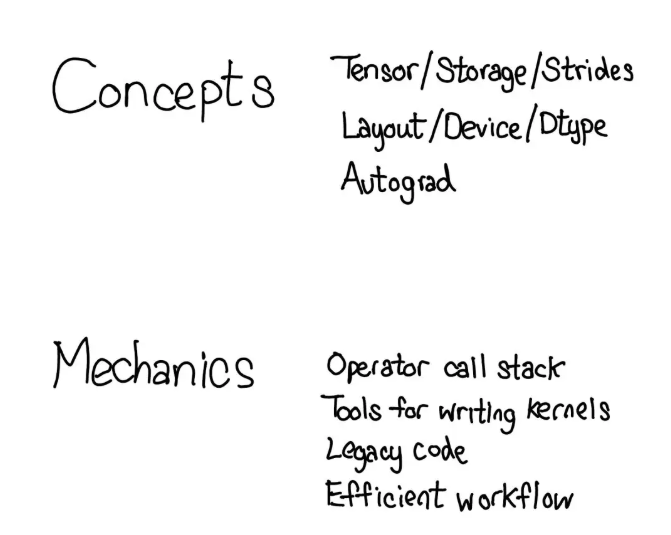 Concepts
Tensor/Storage/Strides
Layout/Device/Dtype
Autograd
Mechanics
Operator call stack
Tools for writing kernels
Legacy code
Efficient workflow